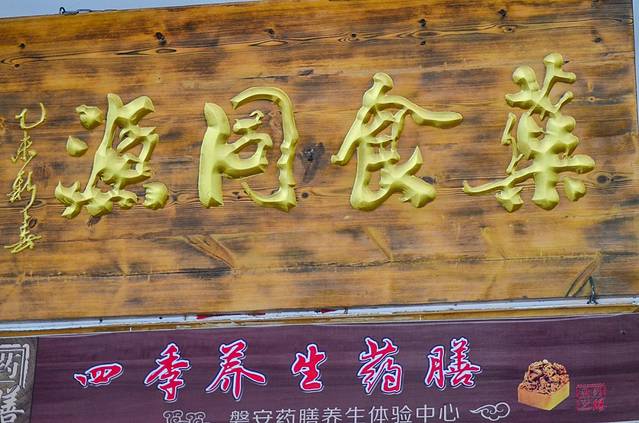 藥食同源
乙未新春
四季养生药膳
磐安药膳养生体验中心